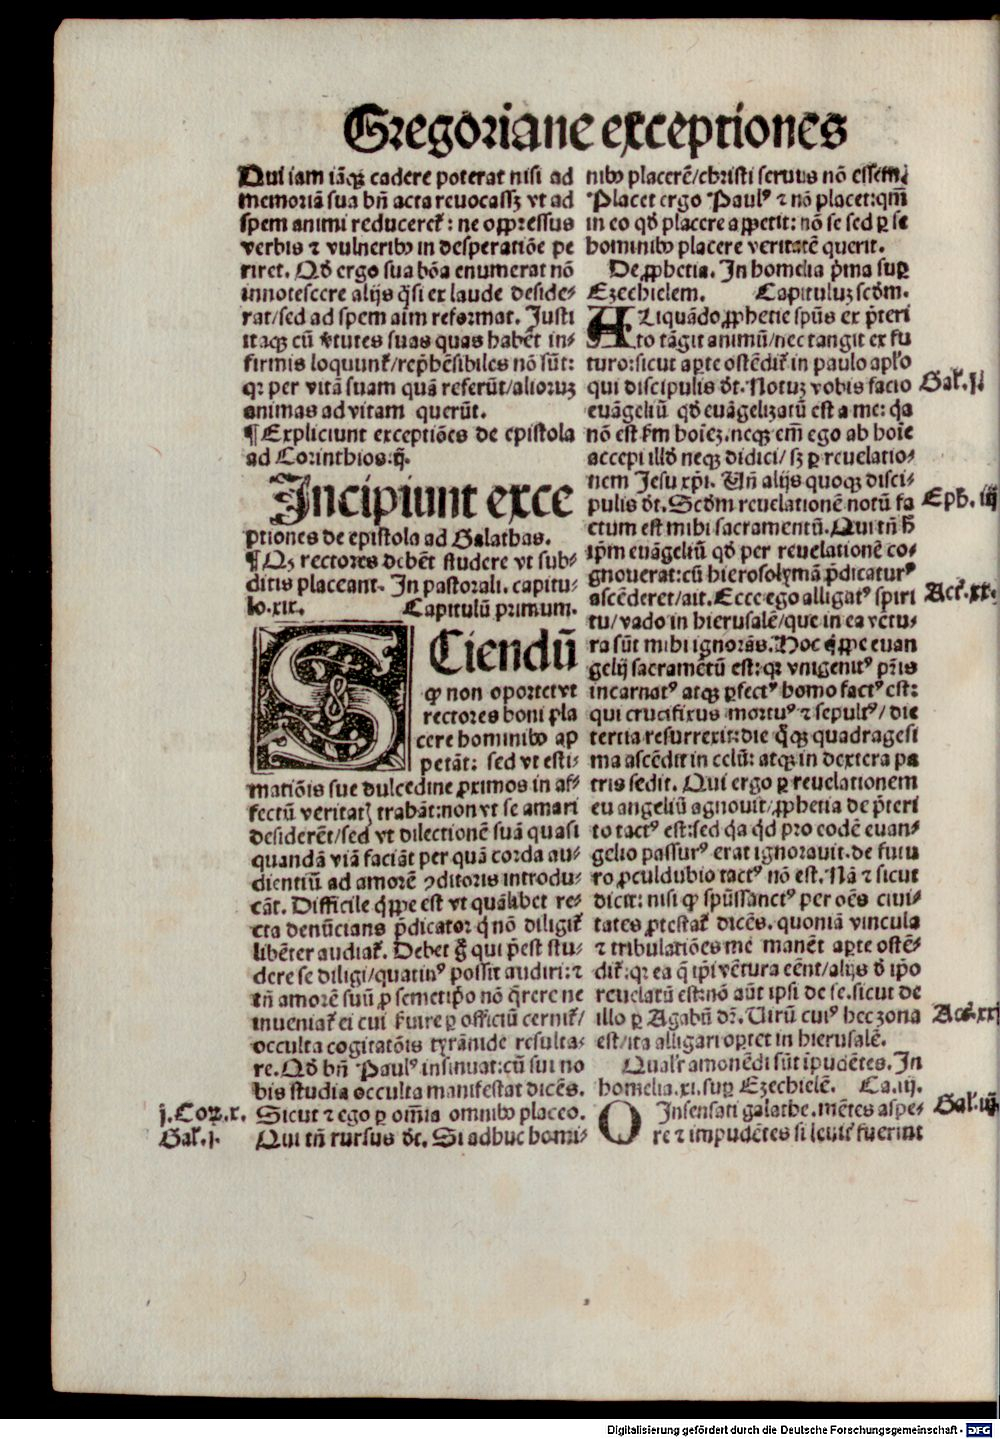 Gregoriane exceptiones
Qui iam iāqꝫ cadere poterat nisi ad
memoriā sua bn̄ acta reuocassꝫ vt ad
spem animi reduceret᷑: ne oppressus
verbis ⁊ vulneribꝰ in desperatiōe pe
riret. Qd̄ ergo sua bōa enumerat nō
innotescere alijs q̄si ex laude deside⸗
rat/sed ad spem aīm reformat. Justi
itaqꝫ cū v̄tutes suas quas habēt in⸗
firmis loquunt᷑/rep̄hēsibiles nō sūt:
qꝛ per vitā suam quā referūt/alioruꝫ
animas ad vitam querūt.
¶ Expliciunt exceptiōes de epistola
ad Corinthios.ij.
Incipiunt exce
ptiones de epistola ad Galathas.
¶ Qꝫ rectores debēt studere vt sub⸗
ditis placeant. In pastorali. capitu⸗
lo.xix. Capitulū primum.
SCiendū
ꝙ non oportet vt
rectores boni pla
cere hominibꝰ ap
petāt: sed vt esti⸗
matiōis sue dulcedine ꝓximos in af⸗
fectū veritatꝭ trahāt:non vt se amari
desiderēt/sed vt dilectionē suā quasi
quandā viā faciāt per quā corda au⸗
dientiū ad amorē ꝯditoris introdu⸗
cāt. Difficile q̄ppe est vt quālibet re⸗
cta denūcians p̄dicator q̄ nō diligit᷑
libēter audiat᷑. Debet g̊ qui p̄est stu⸗
dere se diligi/quatinꝰ possit audiri:⁊
tn̄ amorē suū ꝓ semetip̄o nō q̄rere ne
inueniat᷑ ei cui ẜuire ꝑ officiū cernit᷑/
occulta cogitatōis tyrānide resulta⸗
re. Qd̄ bn̄ Paulꝰ insinuat:cū sui no
bis studia occulta manifestat dicēs.
j.Coꝝ.x. Sicut ⁊ ego ꝑ om̄ia omnibꝰ placeo.
Gal᷑.j. Qui tn̄ rursus dt̄. Si adhuc homi⸗
nibꝰ placerē/christi seruus nō essem.
Placet ergo Paulꝰ ⁊ nō placet:qm̄
in eo qd̄ placere appetit: nō se sed ꝑ se
hominibꝰ placere veritatē querit.
De ꝓphetia. In homelia p̄ma suꝑ
Ezechielem. Capituluꝫ scd̄m.
ALiquādo ꝓphetie spūs ex p̄teri
to tāgit animū/nec tangit ex fu
turo:sicut aꝑte ostēdit᷑ in paulo apl̄o
qui discipulis dt̄. Notuꝫ vobis facio Gal᷑.j.
euāgeliū qd̄ euāgelizatū est a me: q̄a
nō est ẜm hoīeꝫ.neqꝫ em̄ ego ab hoīe
accepi illd̄ neqꝫ didici/ sꝫ ꝑ reuelatio⸗
nem Jesu xp̄i. Vn̄ alijs quoqꝫ disci⸗
pulis dt̄. Scd̄m reuelationē notū fa Eph.iij
ctum est mihi sacramentū. Qui tn̄ h̄
ip̄m euāgeliū qd̄ per reuelationē co⸗
gnouerat:cū hierosolymā p̄dicaturꝰ
ascēderet/ait. Ecce ego alligatꝰ spiri Act᷑.xx.
tu/ vado in hierusalē/que in ea vētu⸗
ra sūt mihi ignorās. Hoc q̄ppe euan
gelij sacramētū est:qꝛ vnigenitꝰ pr̄is
incarnatꝰ atqꝫ ꝑfectꝰ homo factꝰ est:
qui crucifixus mortuꝰ ⁊ sepultꝰ/ die
tertia resurrexit:die q̊qꝫ quadragesi
ma ascēdit in celū: atqꝫ in dextera pa
tris sedit. Qui ergo ꝑ reuelationem
eu angeliū agnouit/ꝓphetia de p̄teri
to tactꝰ est:sed q̄a qd̄ pro eodē euan⸗
gelio passurꝰ erat ignorauit.de futu
ro ꝓculdubio tactꝰ nō est. Nā ⁊ sicut
dicit: nisi ꝙ spūssanctꝰ per oēs ciui⸗
tates ꝓtestat᷑ dicēs. quoniā vincula
⁊ tribulatiōes me manēt aꝑte ostē⸗
dit᷑:qꝛ ea q̄ ip̄i vētura eēnt/alijs d̄ ip̄o
reuelatū est:nō aūt ipsi de se.sicut de
illo ꝑ Agabū dr̄. Uirū cuiꝰ hec zona Act᷑.xxj
est/ita alligari oꝑtet in hierusalē.
Qualr̄ amonēdi sūt īpudētes. In
homelia.xi.suꝑ Ezechielē. Ca.iij.
O Insensati galathe. mētes aspe⸗ Gal᷑.iij.
re ⁊ impudētes si leuit᷑ fuerint
Digitalisierung gefördert durch die Deutsche Forschungsgemeinschaft - DFG